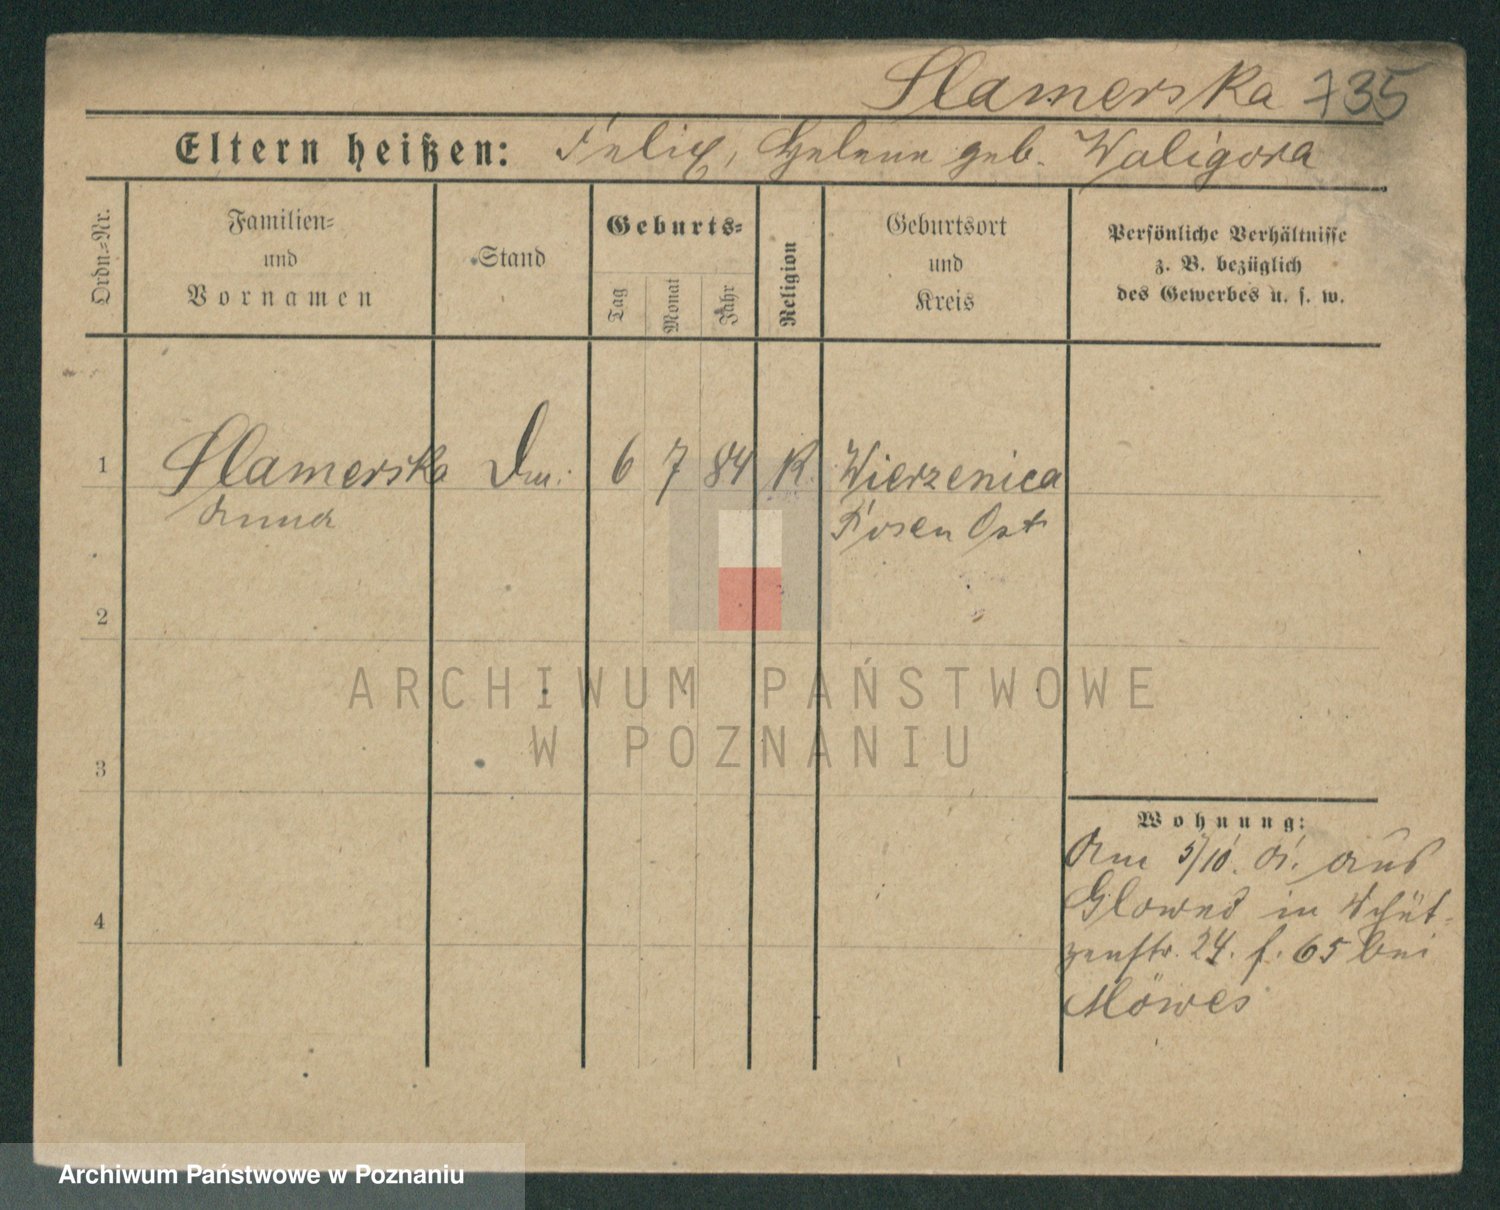 Slamerska 735
Eltern heißen: Felix, Helene geb. Waligora
Ordn.=Nr.
Familien=
und
Vornamen
Stand
Geburts=
Tag
Monat
Jahr
Religion
Geburtsort
und
Kreis
Persönliche Verhältnisse
z. B. bezüglich
des Gewerbes u. s. w.
1 Slamerska 6 7 84 K. Wierzenica
Anna Posen Ost
2
3
4
Wohnung:
Am 5/10. 01. aus
Glowno in Schüt-
zenstr. 24. f. 65 bei
Möwes
ARCHIWUM PAŃSTWOWE
W POZNANIU
Archiwum Państwowe w Poznaniu